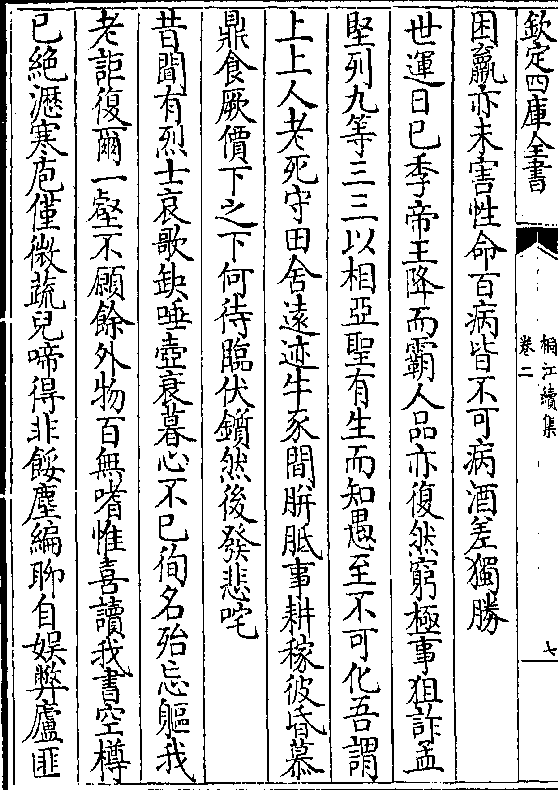 欽定四庫全書
桐江續集
卷二
七
困羸亦未害性命百病皆不可病酒差獨勝
世運日已季帝王降而霸人品亦復然窮極事狙詐孟
堅列九等三三以相亞聖有生而知愚至不可化吾謂
上上人老死守田舍遠迹牛豕間胼胝事耕稼彼昏慕
鼎食厥價下之下何待臨伏鑕然後發悲咤
昔聞有烈士哀歌缺唾壺衰暮心不已徇名殆忘軀我
老詎復爾一壑不願餘外物百無嗜惟喜讀我書空樽
已絶瀝寒庖僅微蔬兒啼得非餒塵編聊自娱弊廬匪